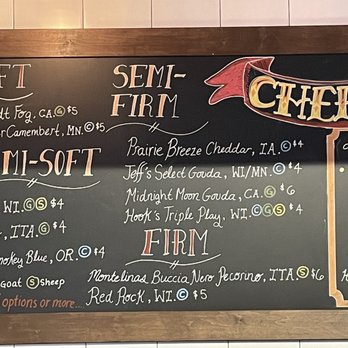 FT
SEMI-
FIRM
CHEE
dt Fog, CA. G $5
r Camembert, MN. C $5
MI-SOFT
WI. G S $4
, ITA. G $4
mokey Blue, OR. C $4
Goat S Sheep
options or more....
Prairie Breeze Cheddar, IA. C $4
Jeff's Select Gouda, WI/MN. C $4
Midnight Moon Gouda, CA. G $6
Hook's Triple Play, WI. C G S $4
FIRM
Montelinas Buccia Nero Pecorino, ITA. S $6
Red Rock, WI. C $5